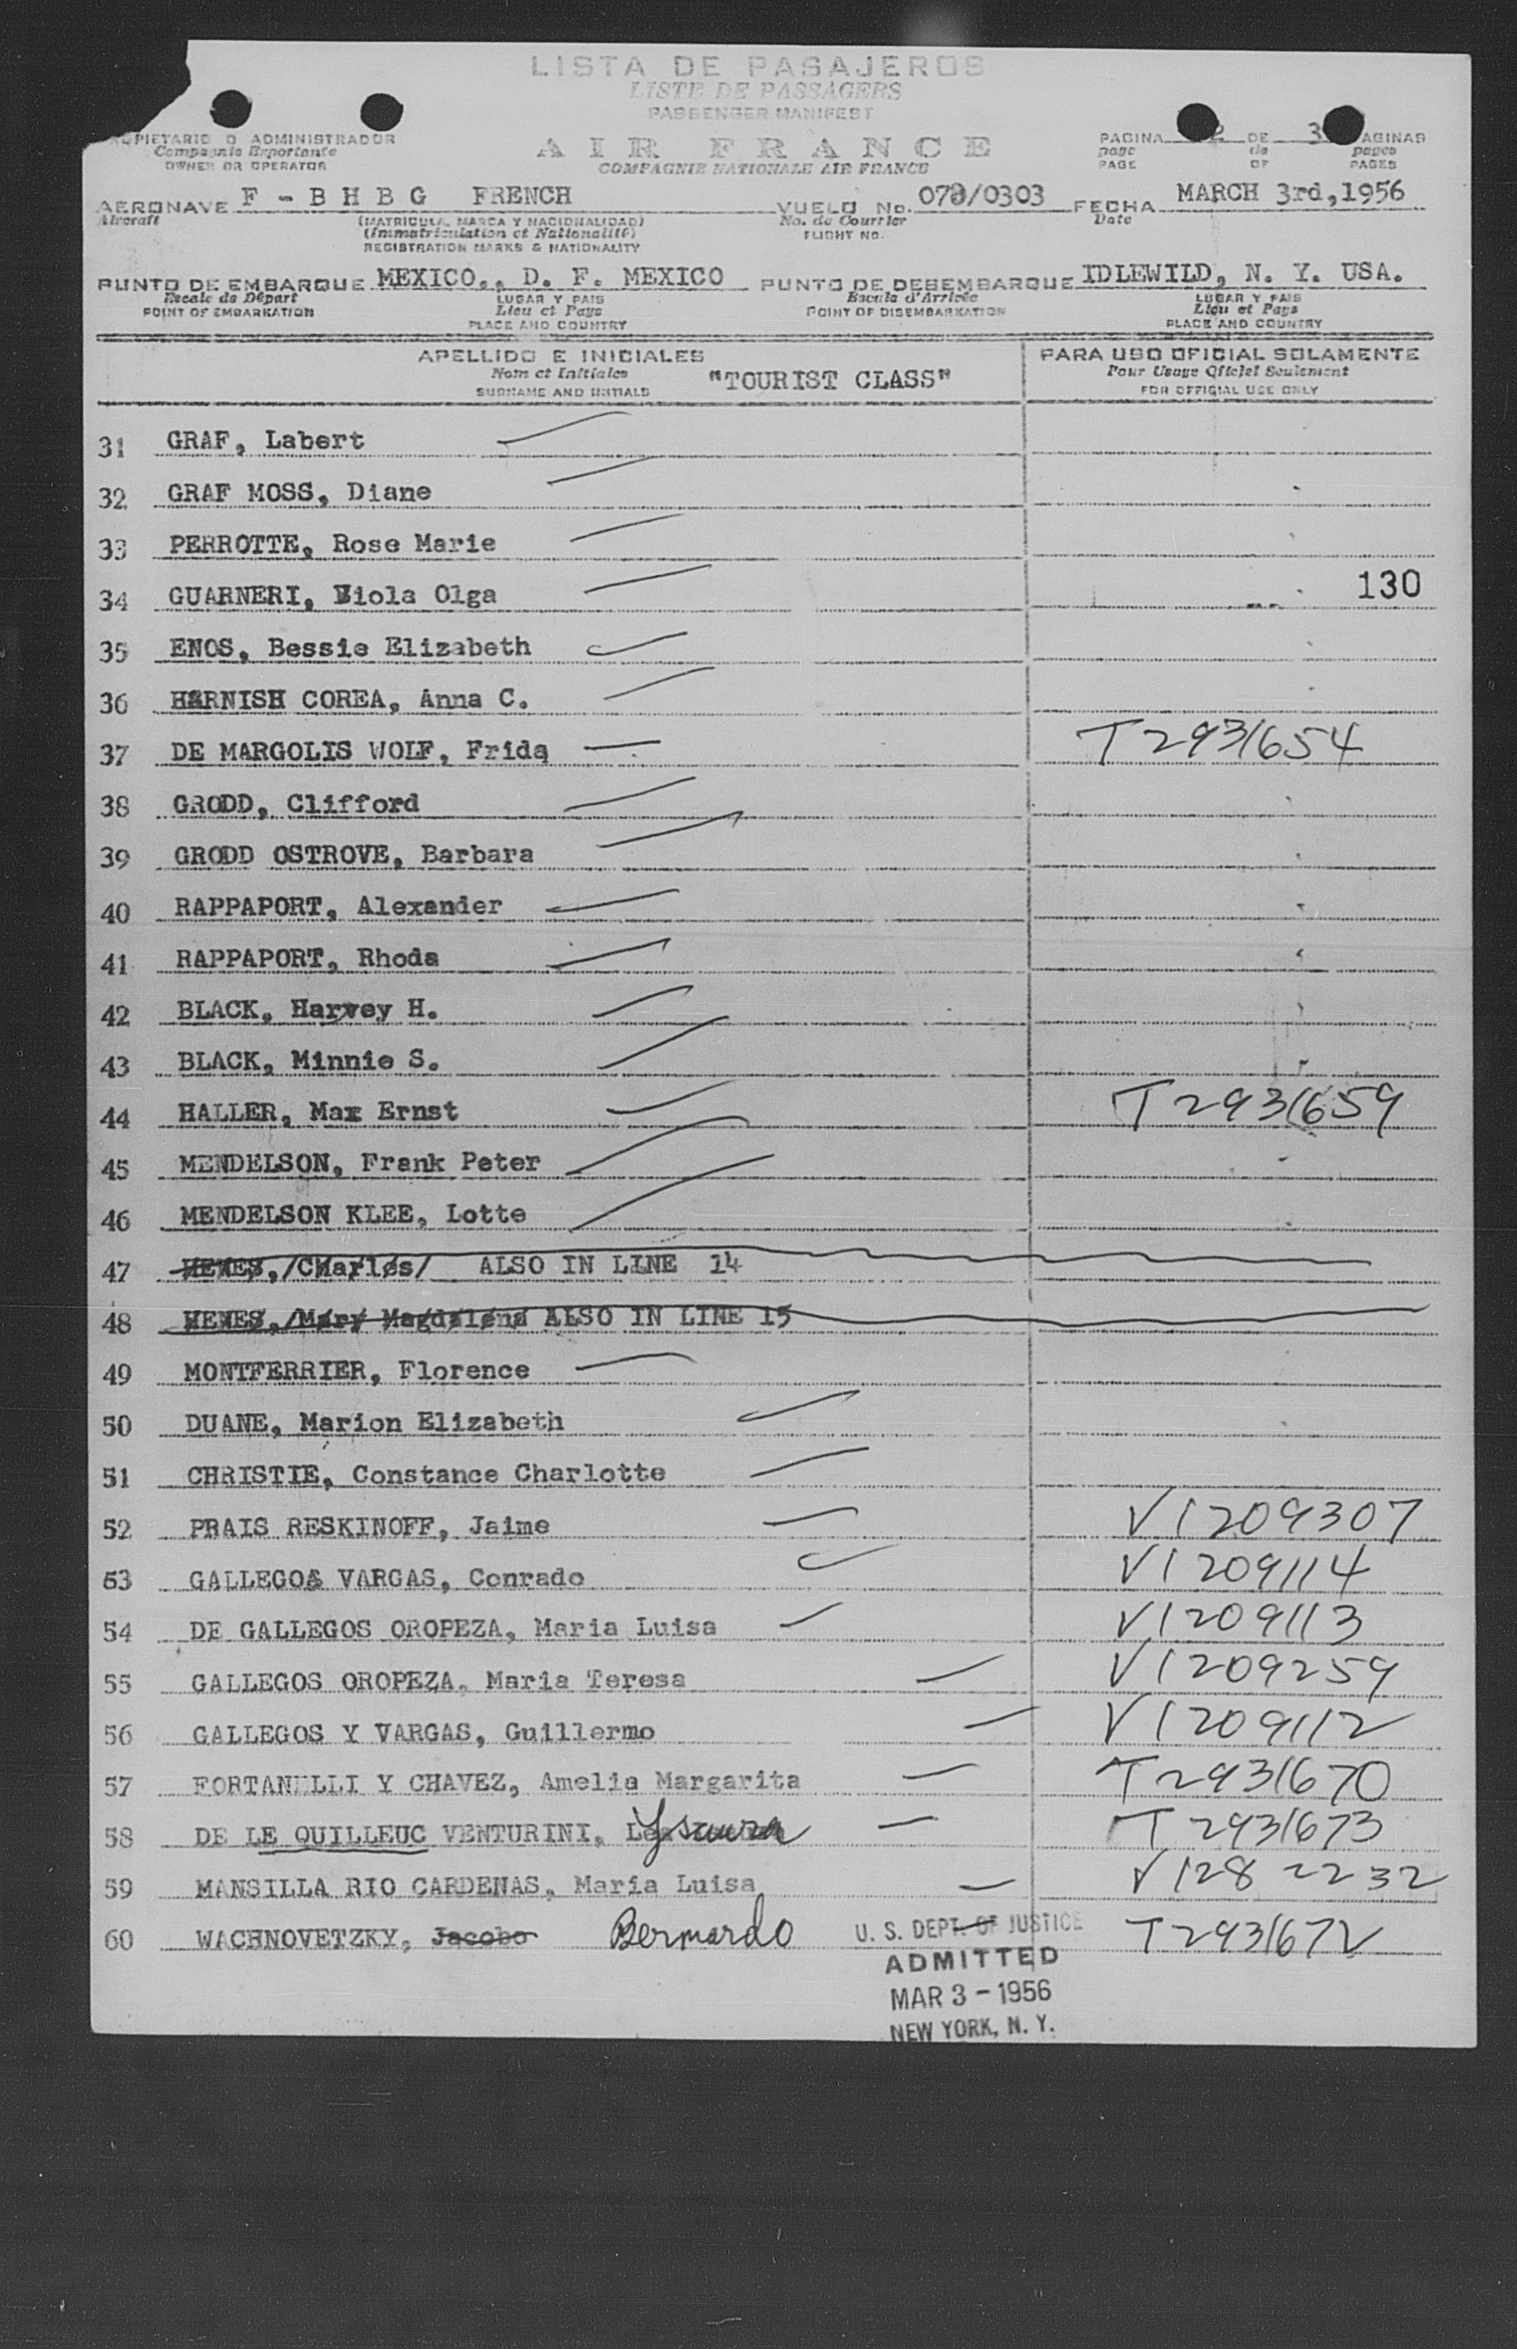 LISTA DE PASAJEROS
LISTE DE PASSAGERS
PASSENGER MANIFEST
PROPIETARIO O ADMINISTRADOR
Compagnie Exportante
OWNER OR OPERATOR
AIR FRANCE
COMPAGNIE NATIONALE AIR FRANCE
PAGINA 2 DE 3 PAGINAS
page de pages
PAGE OF PAGES
AERONAVE F - B H B G FRENCH VUELO No. 070/0303 FECHA MARCH 3rd,1956
Aircraft (MATRICULA, MARCA Y NACIONALIDAD) No. de Courrier Date
(Immatriculation et Nationalité) FLIGHT NO.
REGISTRATION MARKS & NATIONALITY
PUNTO DE EMBARQUE MEXICO., D. F. MEXICO PUNTO DE DESEMBARQUE IDLEWILD, N. Y. USA.
Escale de Départ LUGAR Y PAIS Escale d'Arrivée LUGAR Y PAIS
POINT OF EMBARKATION Lieu et Pays POINT OF DISEMBARKATION Lieu et Pays
PLACE AND COUNTRY PLACE AND COUNTRY
APELLIDO E INICIALES PARA USO OFICIAL SOLAMENTE
Nom et Initiales "TOURIST CLASS" Pour Usage Officiel Seulement
SURNAME AND INITIALS FOR OFFICIAL USE ONLY
31 GRAF, Labert
32 GRAF MOSS, Diane
33 PERROTTE, Rose Marie
34 GUARNERI, Viola Olga 130
35 ENOS, Bessie Elizabeth
36 HARNISH COREA, Anna C.
37 DE MARGOLIS WOLF, Frida T2931654
38 GRODD, Clifford
39 GRODD OSTROVE, Barbara
40 RAPPAPORT, Alexander
41 RAPPAPORT, Rhoda
42 BLACK, Harvey H.
43 BLACK, Minnie S.
44 HALLER, Max Ernst T2931659
45 MENDELSON, Frank Peter
46 MENDELSON KLEE, Lotte
47 /Charles/ ALSO IN LINE 14
48 /Mary Magdalena ALSO IN LINE 15
49 MONTFERRIER, Florence
50 DUANE, Marion Elizabeth
51 CHRISTIE, Constance Charlotte
52 PRAIS RESKINOFF, Jaime V1209307
53 GALLEGOS VARGAS, Conrado V1209114
54 DE GALLEGOS OROPEZA, Maria Luisa V1209113
55 GALLEGOS OROPEZA, Maria Teresa V1209259
56 GALLEGOS Y VARGAS, Guillermo V1209112
57 FORTANELLI Y CHAVEZ, Amelia Margarita T2931670
58 DE LE QUILLEUC VENTURINI, Ysaura T2931673
59 MANSILLA RIO CARDENAS, Maria Luisa V1282232
60 WACHNOVETZKY, Jacobo Bernardo T2931672
U. S. DEPT. OF JUSTICE
ADMITTED
MAR 3 - 1956
NEW YORK, N. Y.